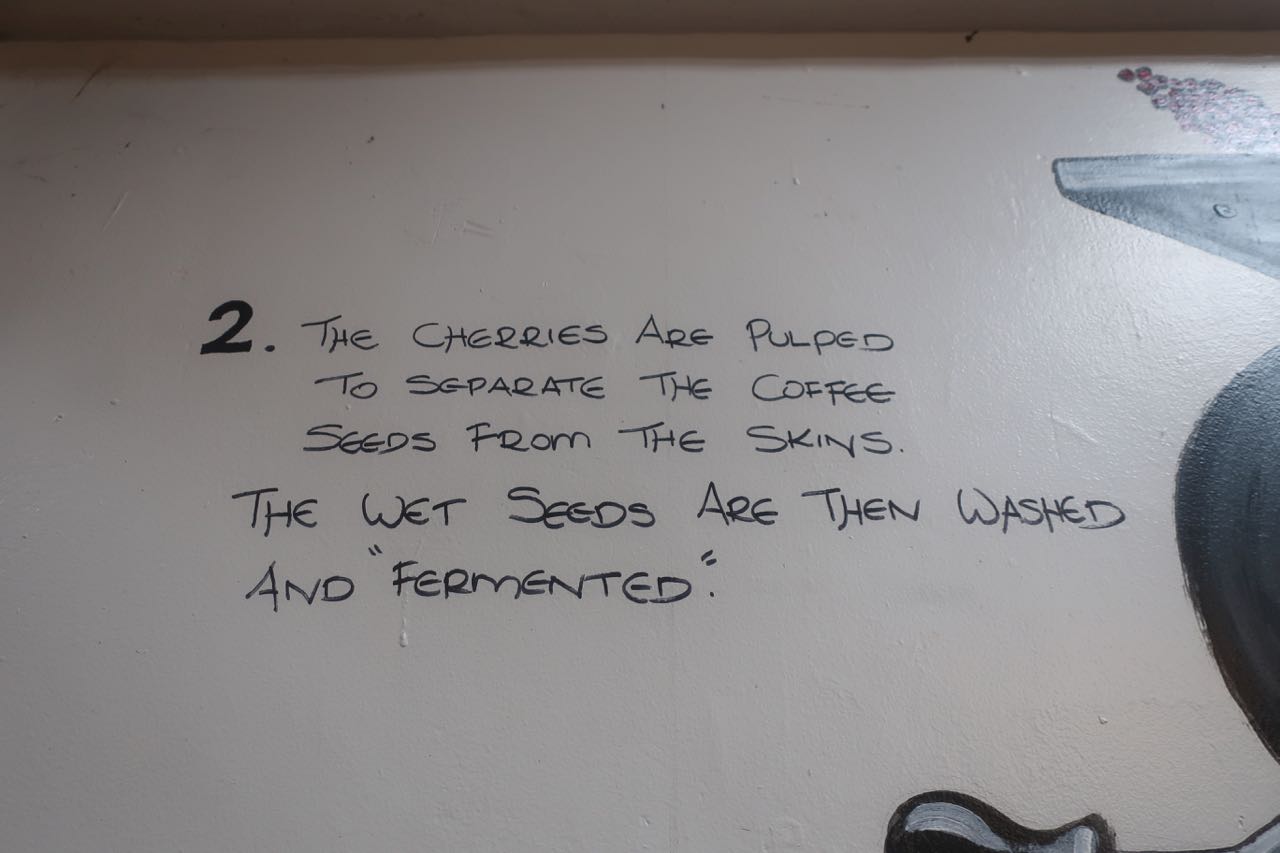 2. The Cherries Are Pulped
To separate the Coffee
Seeds From The Skins.
The wet Seeds Are Then Washed
And "Fermented".